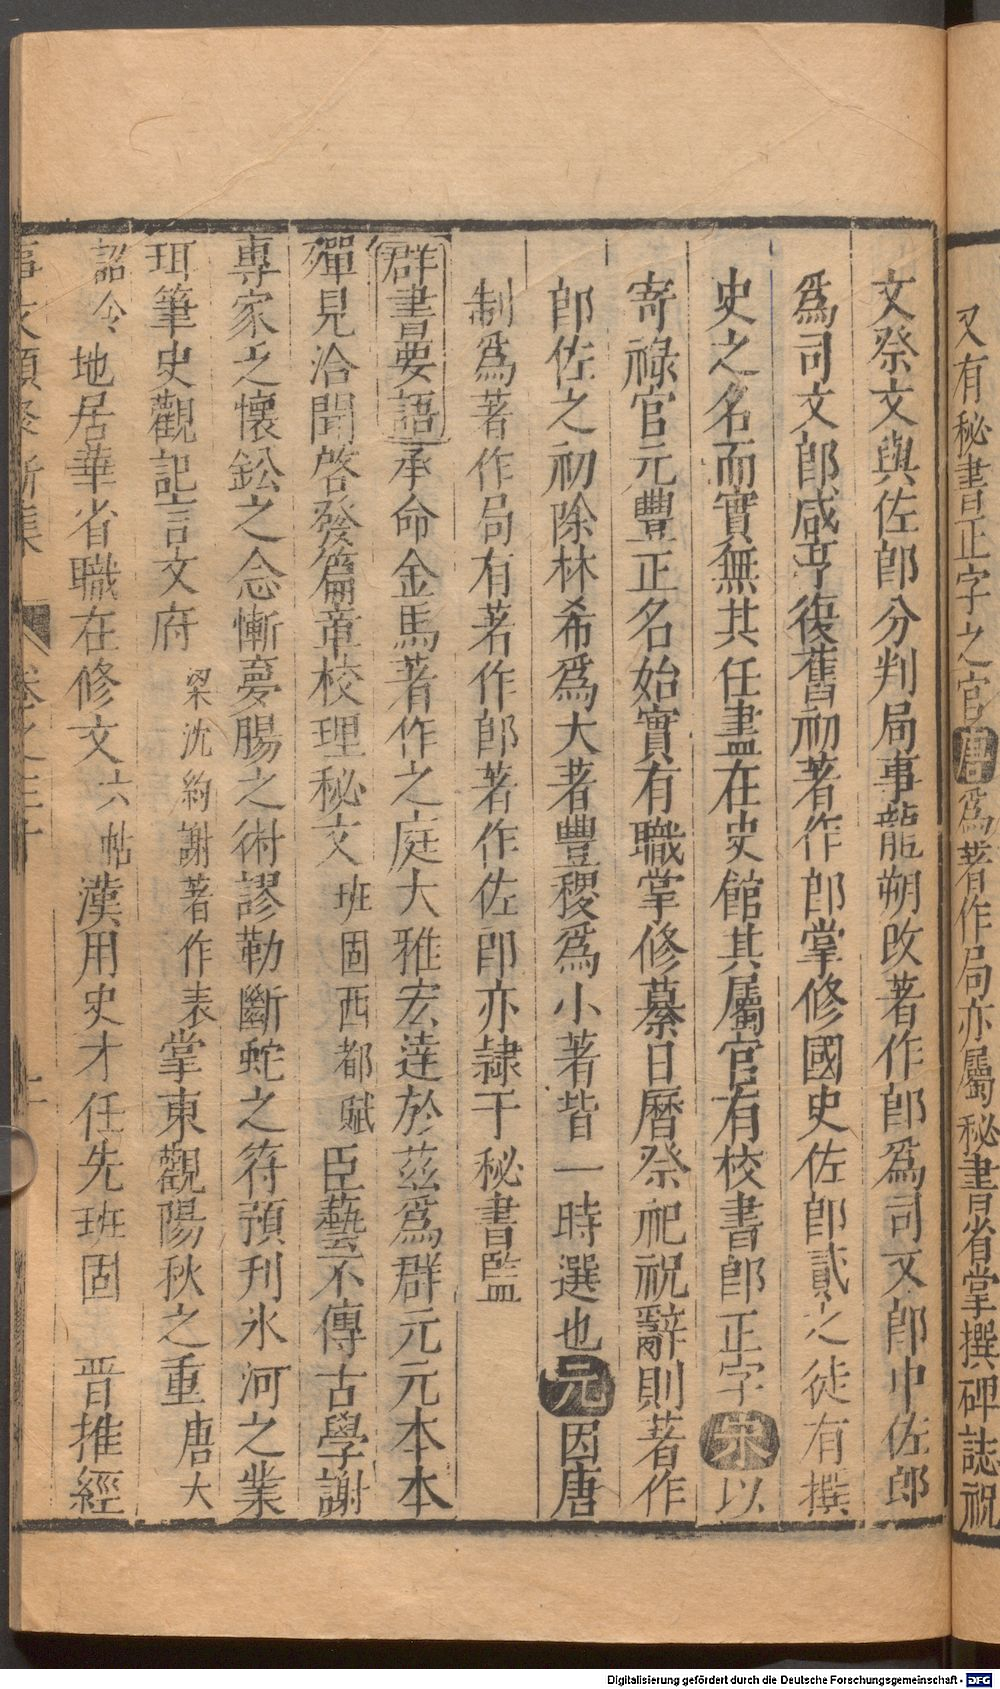 又有秘書正字之官唐爲著作局亦屬秘書省掌撰碑誌祝
文祭文與佐郎分判局事龍朔改著作郎爲司文郎中佐郎
爲司文郎咸亨復舊初著作郎掌修國史佐郎貳之徒有撰
史之名而實無其任盡在史館其屬官有校書郎正字宋以
寄祿官元豐正名始實有職掌修纂日曆祭祀祝辭則著作
郎佐之初除林希爲大著豐稷爲小著皆一時選也元因唐
制爲著作局有著作郎著作佐郎亦隸于秘書監
群書要語承命金馬著作之庭大雅宏達於茲爲群元元本本
殫見洽聞啓發篇章校理秘文班固西都賦臣藝不傳古學謝
專家乏懷鈆之念慚夢腸之術謬勒斷蛇之符預刋氷河之業
珥筆史觀記言文府梁沈約謝著作表掌東觀陽秋之重唐大
詔令地居華省職在修文六帖漢用史才任先班固 晋推經
事文類聚新集 卷之三十 十一
Digitalisierung gefördert durch die Deutsche Forschungsgemeinschaft - DFG